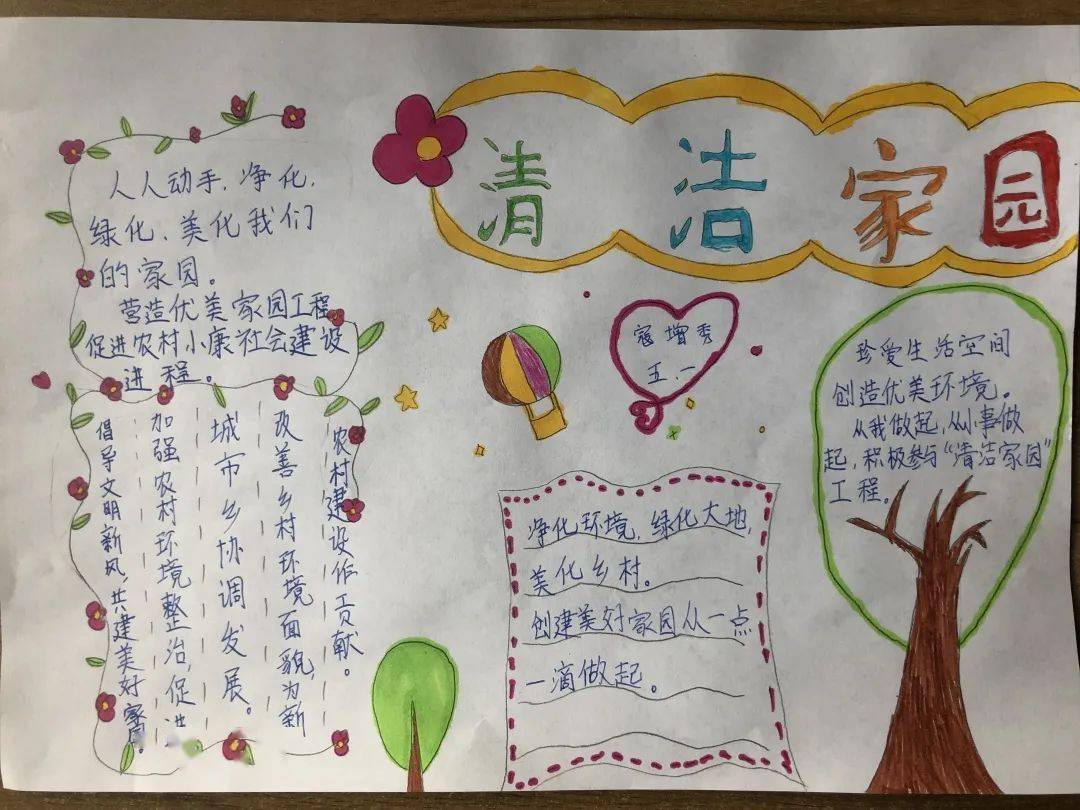 清洁家园
人人动手,净化,
绿化、美化我们
的家园。
营造优美家园工程
促进农村小康社会建设
进程。
倡导文明新风,共建美好家园。
加强农村环境整治,促进
城市乡协调发展。
改善乡村环境面貌,为新
农村建设作贡献。
寇增秀
五.一
净化环境,绿化大地,
美化乡村。
创建美好家园从一点
一滴做起。
珍爱生活空间
创造优美环境。
从我做起,从小事做
起,积极参与“清洁家园”
工程。